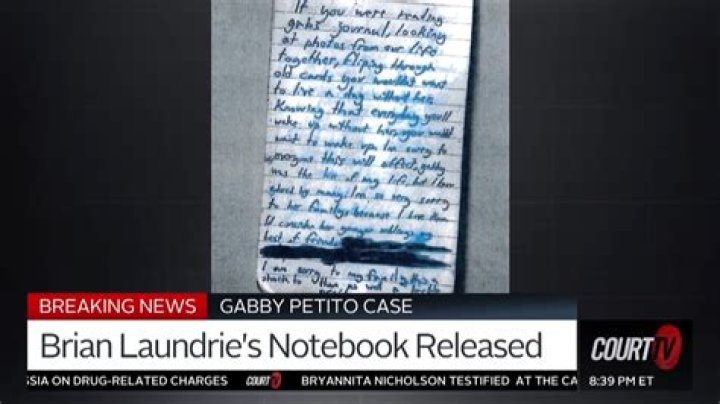 If you were reading
gabs journal, looking
at photos from our life
together, fliping through
old cards you wouldn't want
to live a day without her.
Knowing that everyday you'll
wake up without her, you wouldn't
want to wake up. I'm sorry to
everyone this will affect, gabby
was the love of my life, but I know
adored by many. I'm so very sorry
to her family because I love them
I'd consider her younger siblings my
best of friends
I am sorry to my family, this is
BREAKING NEWS GABBY PETITO CASE
Brian Laundrie's Notebook Released
COURT TV
SSIA ON DRUG-RELATED CHARGES COURT TV BRYANNITA NICHOLSON TESTIFIED AT THE CA
8:39 PM ET